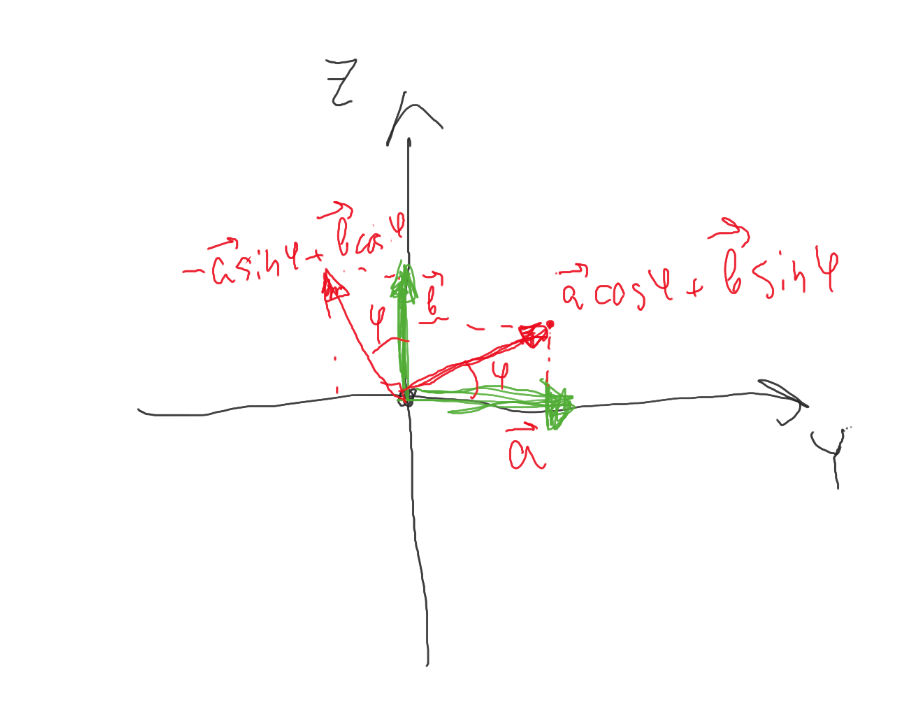 Z
-a⃗ sinφ + b⃗ cosφ
b⃗
a⃗ cosφ + b⃗ sinφ
φ
φ
a⃗
Y